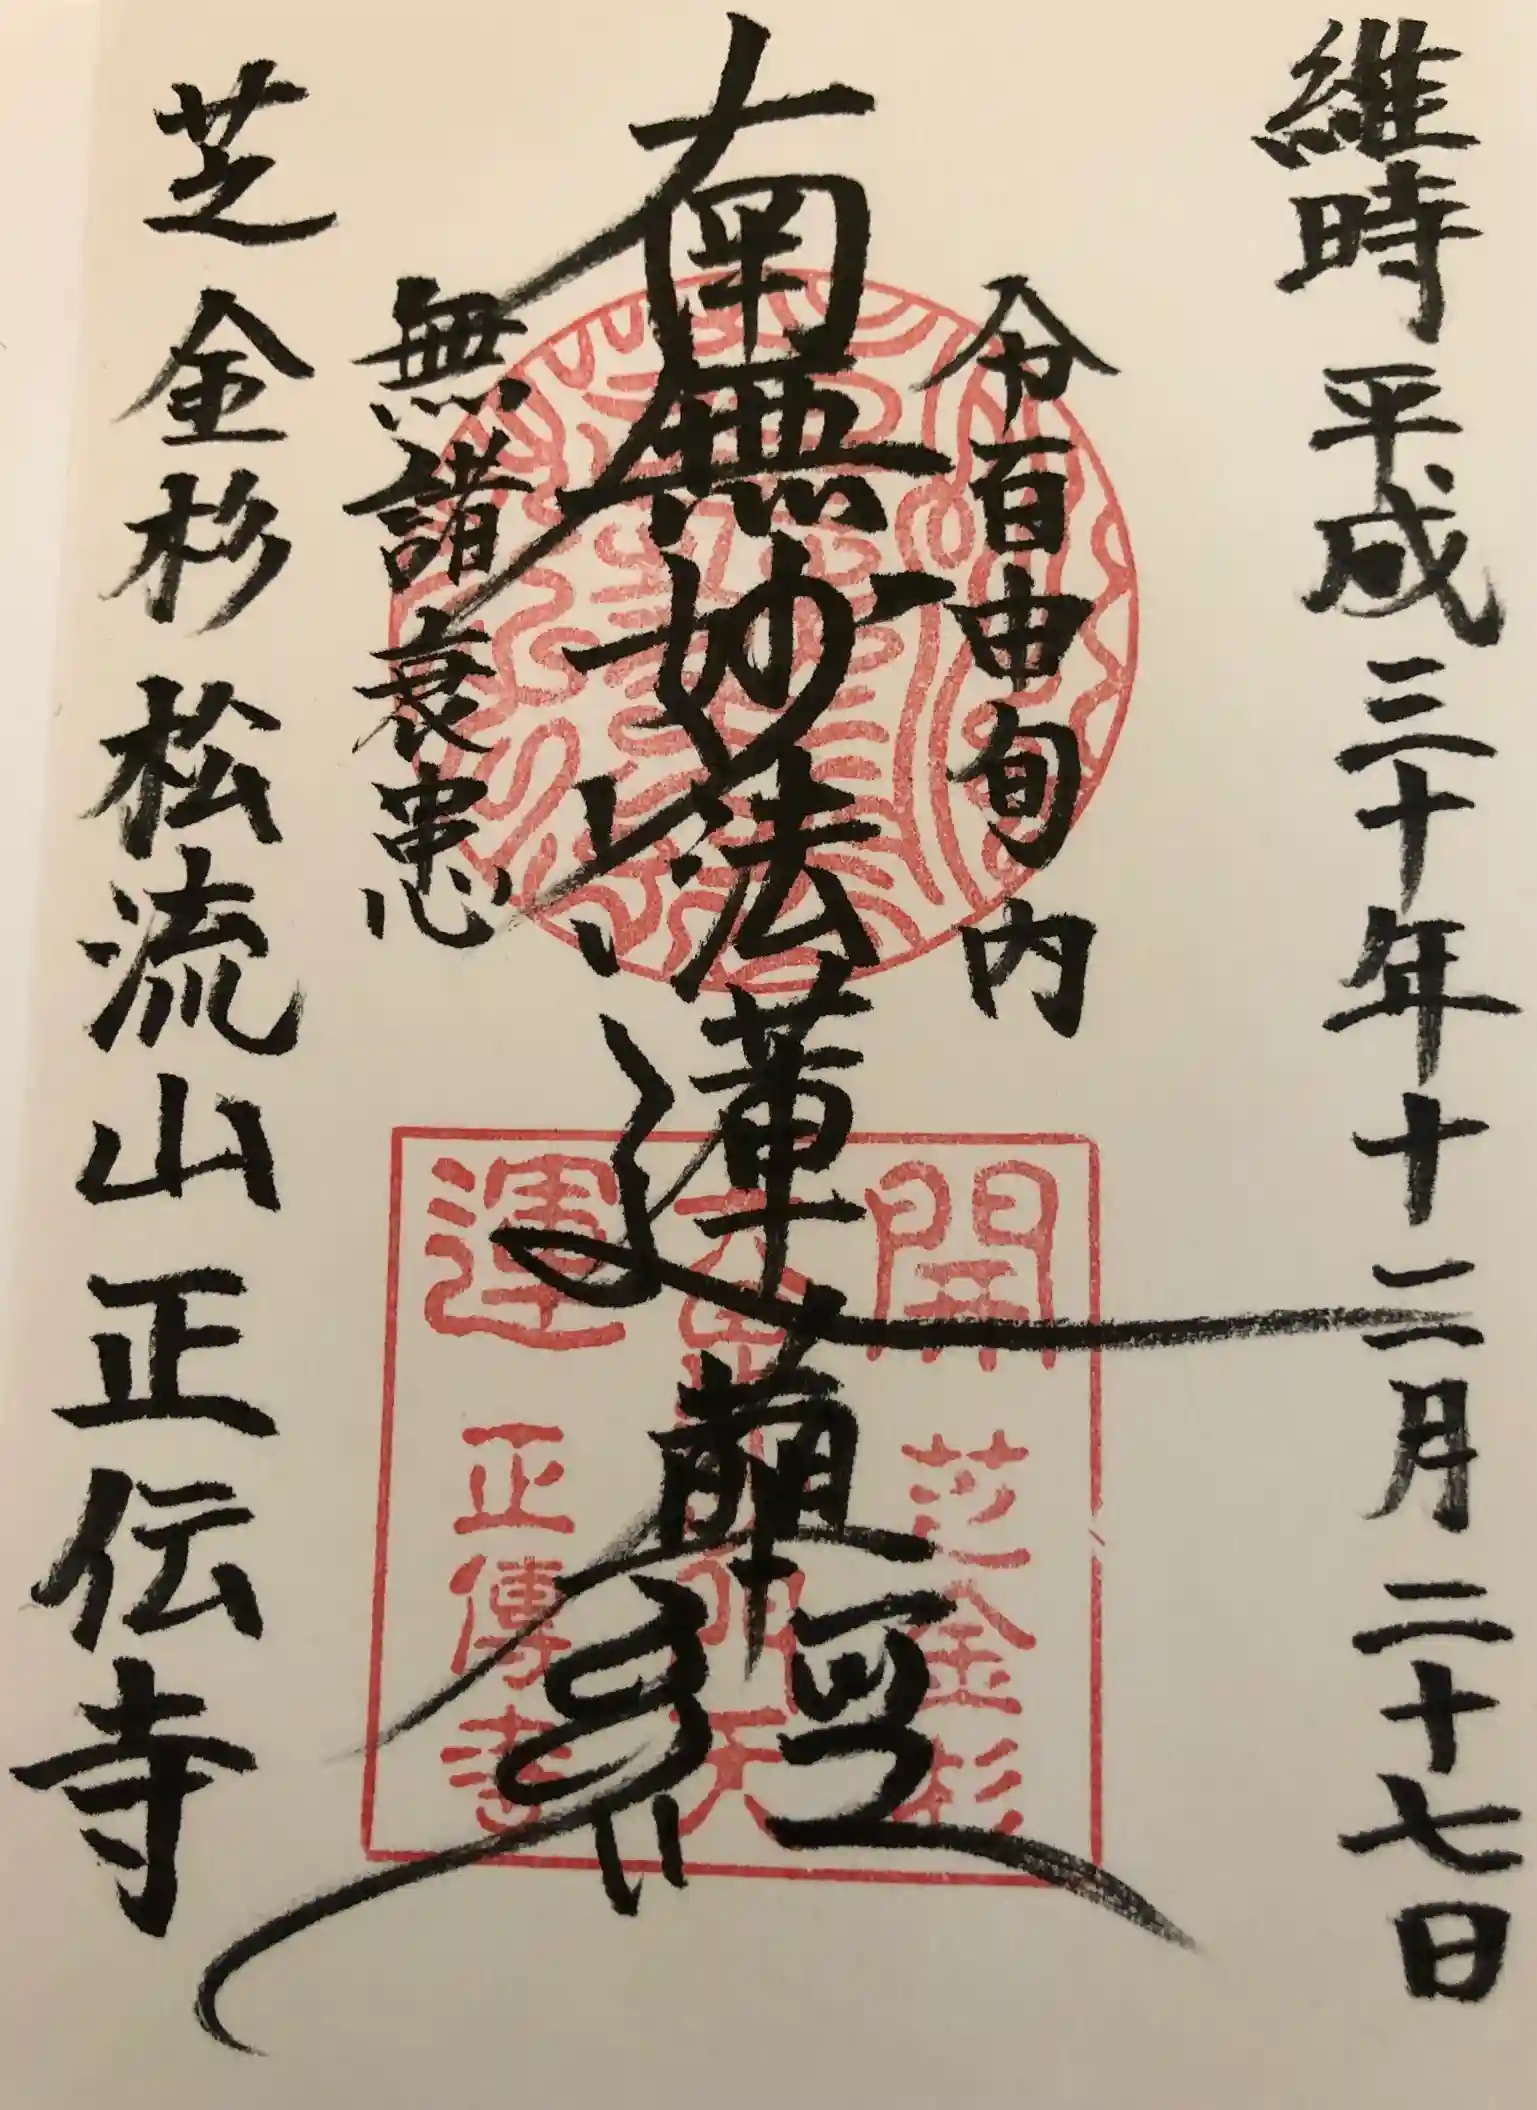 維時平成三十年十二月二十七日
令百由旬内
南無妙法蓮華経
無諸衰患
芝金杉松流山正伝寺
開運
芝金杉
正傳寺